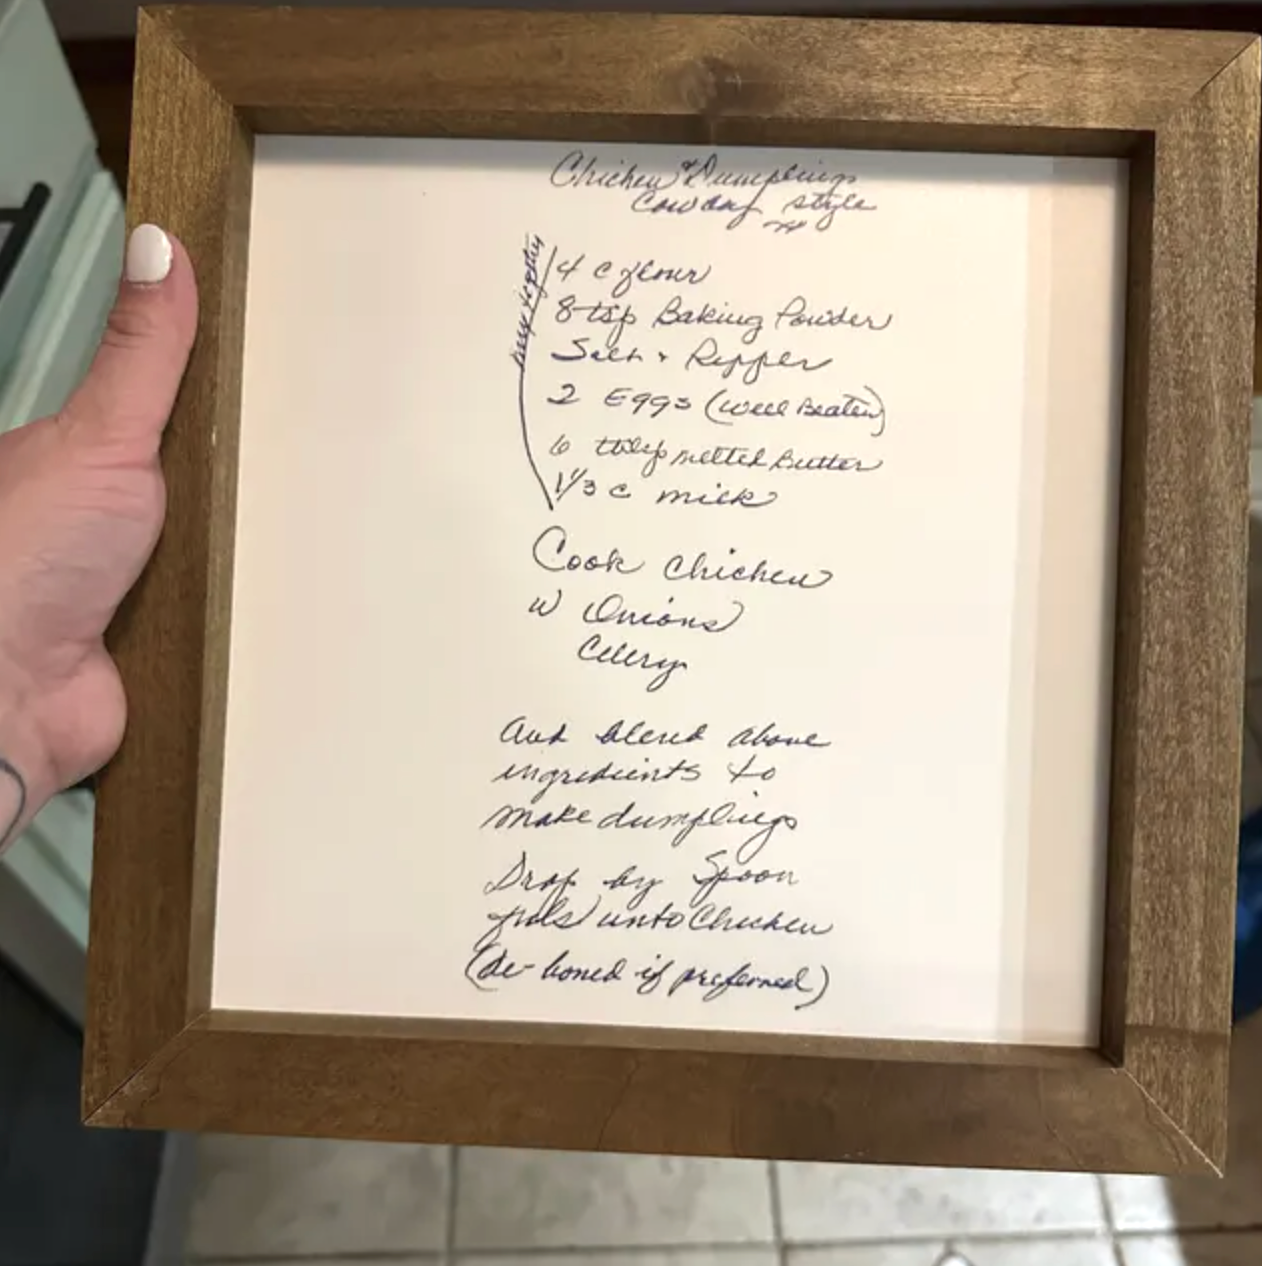 Chicken & Dumplings
Cowdry style
mix together
4 c flour
8 tsp Baking Powder
Salt & Pepper
2 Eggs (well Beaten)
6 tblsp melted Butter
1 1/3 c milk
Cook chicken
w Onions
Celery
And blend above
ingredients to
make dumplings
Drop by Spoon
fuls unto Chicken
(de-boned if preferred)